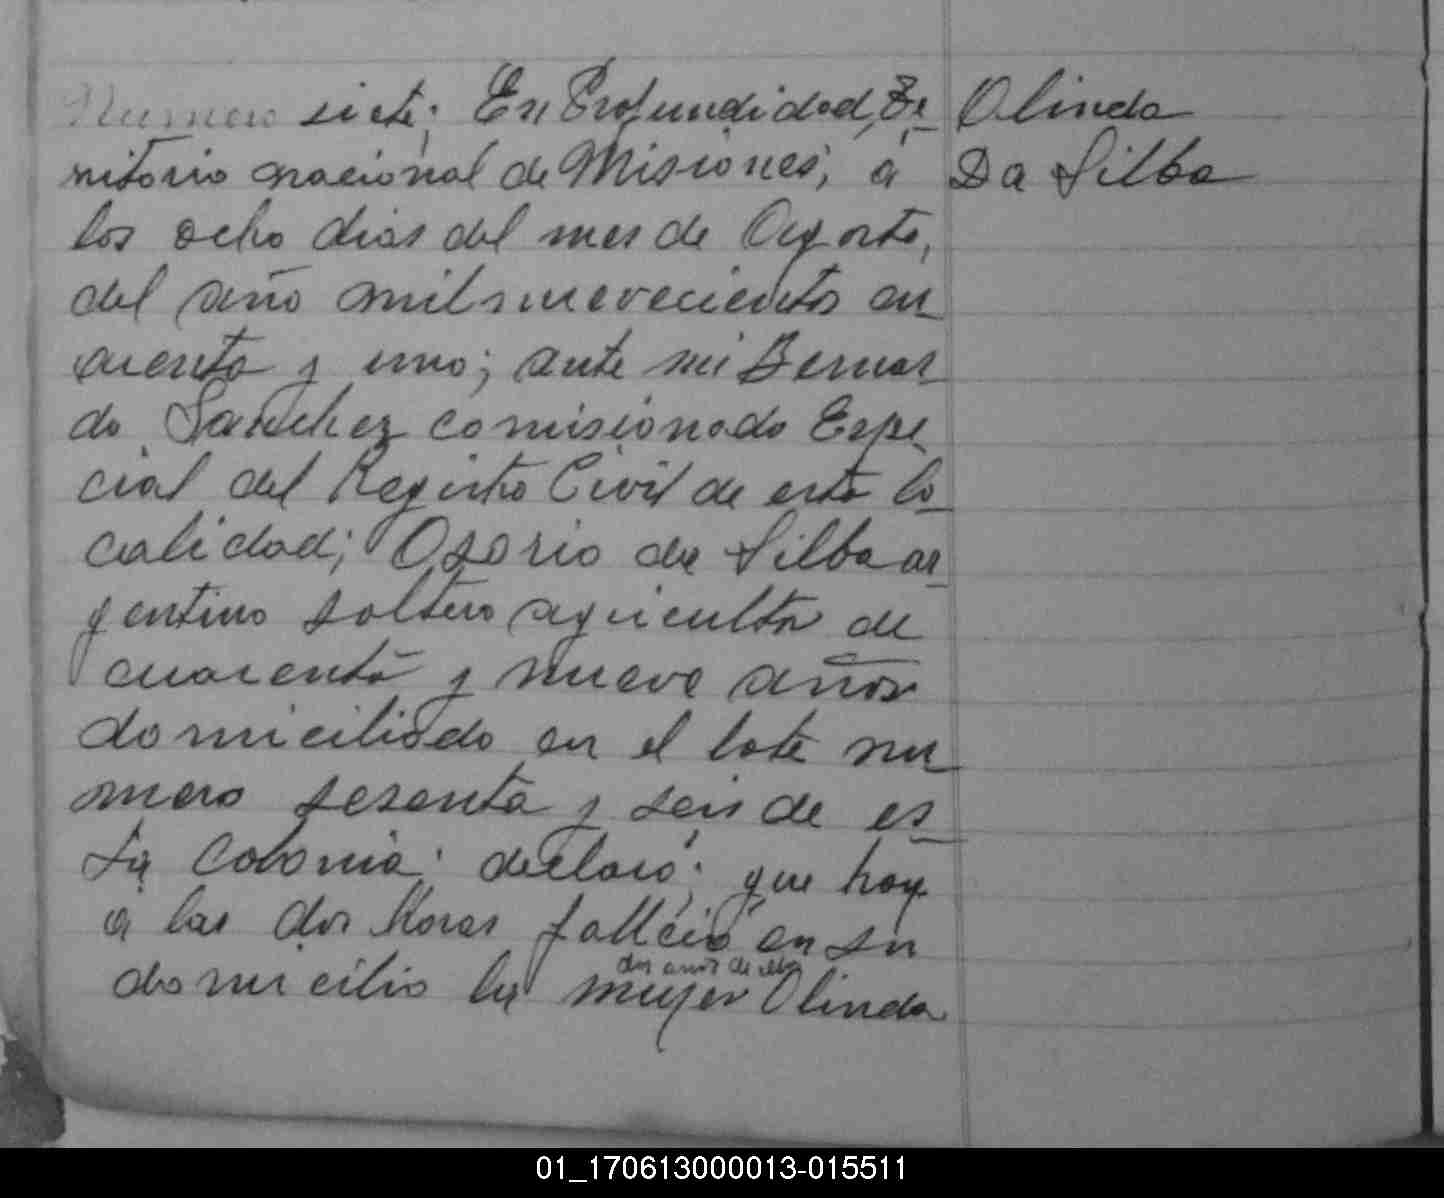 Numero siete; En Profundidad, Te
rritorio nacional de Misiones, á
los ocho dias del mes de Agosto,
del año mil nuevecientos cu
arenta y uno; ante mi Bernar
do Sanchez comisionado Espe
cial del Registro Civil de esta lo
calidad; Osorio da Silba ar
gentino soltero agricultor de
cuarenta y nueve años
domiciliado en el lote nu
mero sesenta y seis de es
ta Colonia; declaró; que hoy
a las dos horas falleció en su
dos anos de
domicilio la mujer Olinda
Olinda
Da Silba
01_170613000013-015511